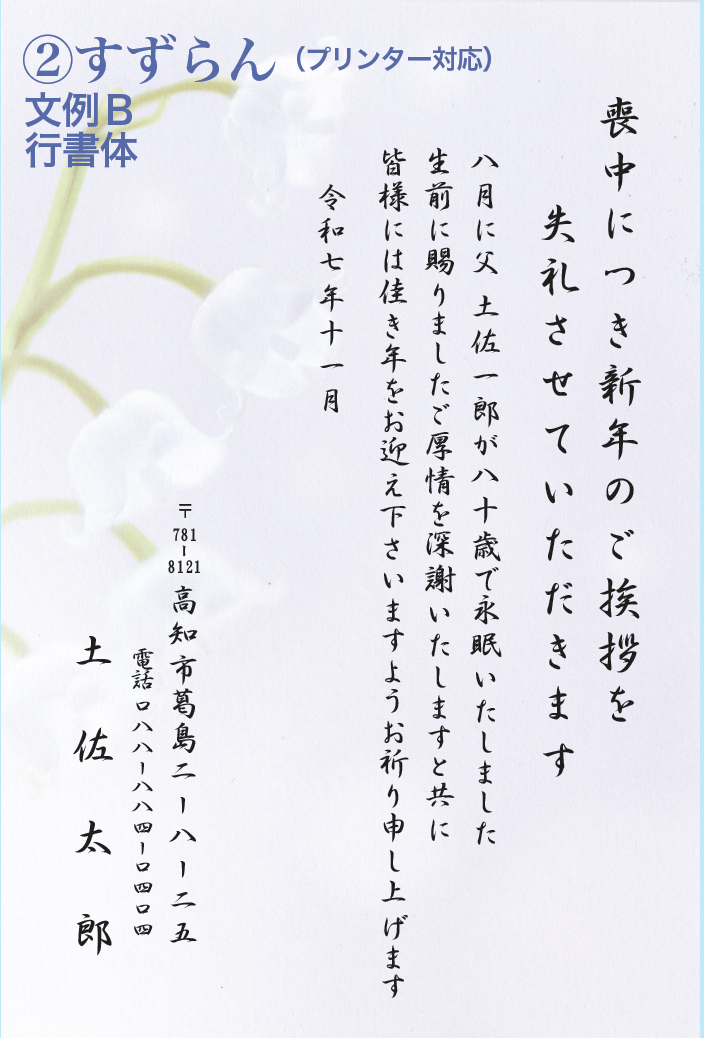 ②すずらん（プリンター対応）
文例B
行書体
喪中につき新年のご挨拶を
失礼させていただきます
八月に父 土佐一郎が八十歳で永眠いたしました
生前に賜りましたご厚情を深謝いたしますと共に
皆様には佳き年をお迎え下さいますようお祈り申し上げます
令和七年十一月
〒781-8121 高知市葛島二ー八ー二五
電話 〇八八ー八八四ー〇四〇四
土佐太郎